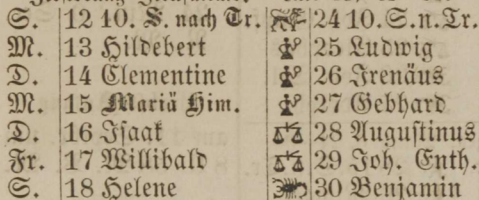 S. 12 10. S. nach Tr. 24 10. S. n. Tr.
M. 13 Hildebert 25 Ludwig
D. 14 Clementine 26 Irenäus
M. 15 Mariä Him. 27 Gebhard
D. 16 Isaak 28 Augustinus
Fr. 17 Willibald 29 Joh. Enth.
S. 18 Helene 30 Benjamin